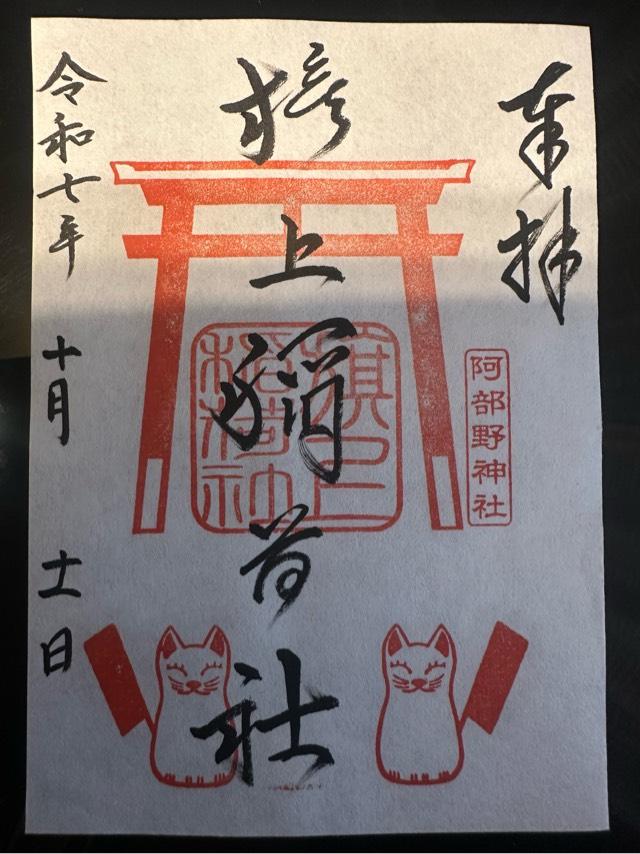 奉拝
阿部野神社
旗上稲荷社
旗上
稲荷神
令和七年 十月 十一日